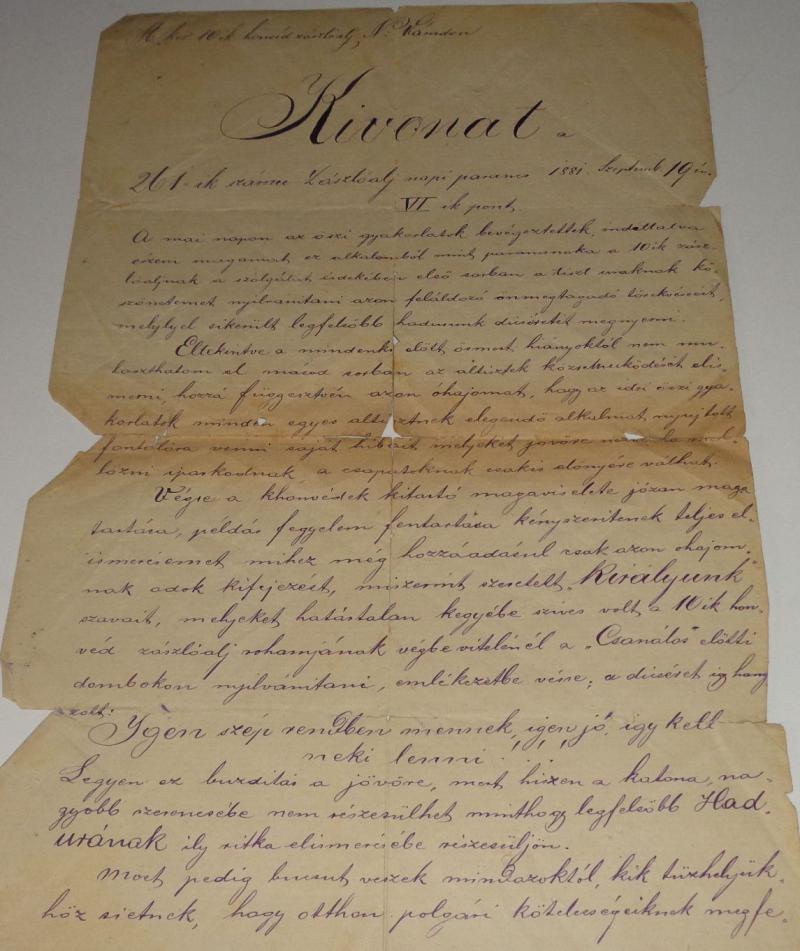 M. kir. 10ik honvéd zászlóalj N: Károlon
Kivonat a
261-ik számu Zászlóalj napi parancs 1881. Septemb. 19 én.
VI ik pont.
A mai napon az öszi gyakorlatok bevégeztettek, indittatva
érzem magamat ez alkalomból mint parancsnoka a 10ik zász-
lóaljnak a szolgálat érdekében első sorban a tiszt uraknak kö-
szönetemet nyilvánitani azon feláldozó önmegtagadó törekvéseért,
melylyel sikerült legfelsőbb hadurunk dicséretét megnyerni.
Eltekintve a mindenki előtt ösmert hiányoktól nem mu-
laszthatom el másod sorban az altisztek közremüködését elis-
merni, hozzá függesztvén azon óhajomat, hogy az idei öszi gya-
korlatok minden egyes altisztnek elegendő alkalmat nyujtott
fontolóra venni saját hibáit melyeket jövőre
lőzni iparkodnak a csapatoknak csakis előnyére válhat.
Végre a khonvédek kitartó magaviselete józan maga
tartása, példás fegyelem fentartása kényszeritenek teljes el-
ismerésemet mihez még hozzáadásul csak azon ohajom-
nak adok kifejezést, miszerint szeretett „Királyunk"
szavait, melyeket határtalan kegyébe szives volt a 10ik hon-
véd zászlóalj rohamjának végbevitelénél a „Csanálos" előtti
dombokon nyilvánitani, emlékezetbe vésse; a dicséret igy hang
zott:
Igen szép rendben mennek, igen jó, igy kell
neki lenni!
Legyen ez buzditás a jövőre, mert hiszen a katona na-
gyobb szerencsébe nem részesülhet minthogy legfelsőbb Had-
urának ily ritka elismerésébe részesüljön.
Most pedig bucsut veszek mindazoktól, kik tüzhelyük-
höz sietnek, hogy otthon polgári kötelességeiknek megfe-